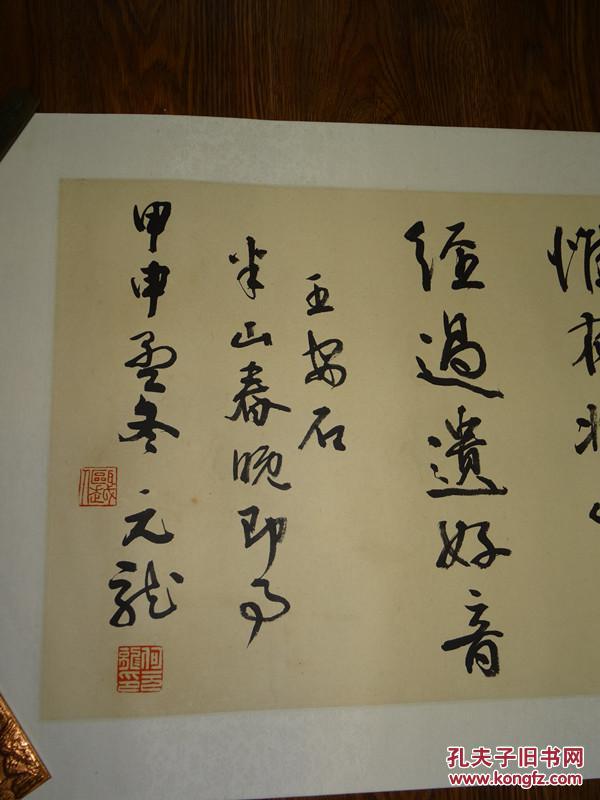 惟有北
經過遺好音
王安石
半山春晚即事
甲申孟冬 元龍
孔夫子旧书网
www.kongfz.com